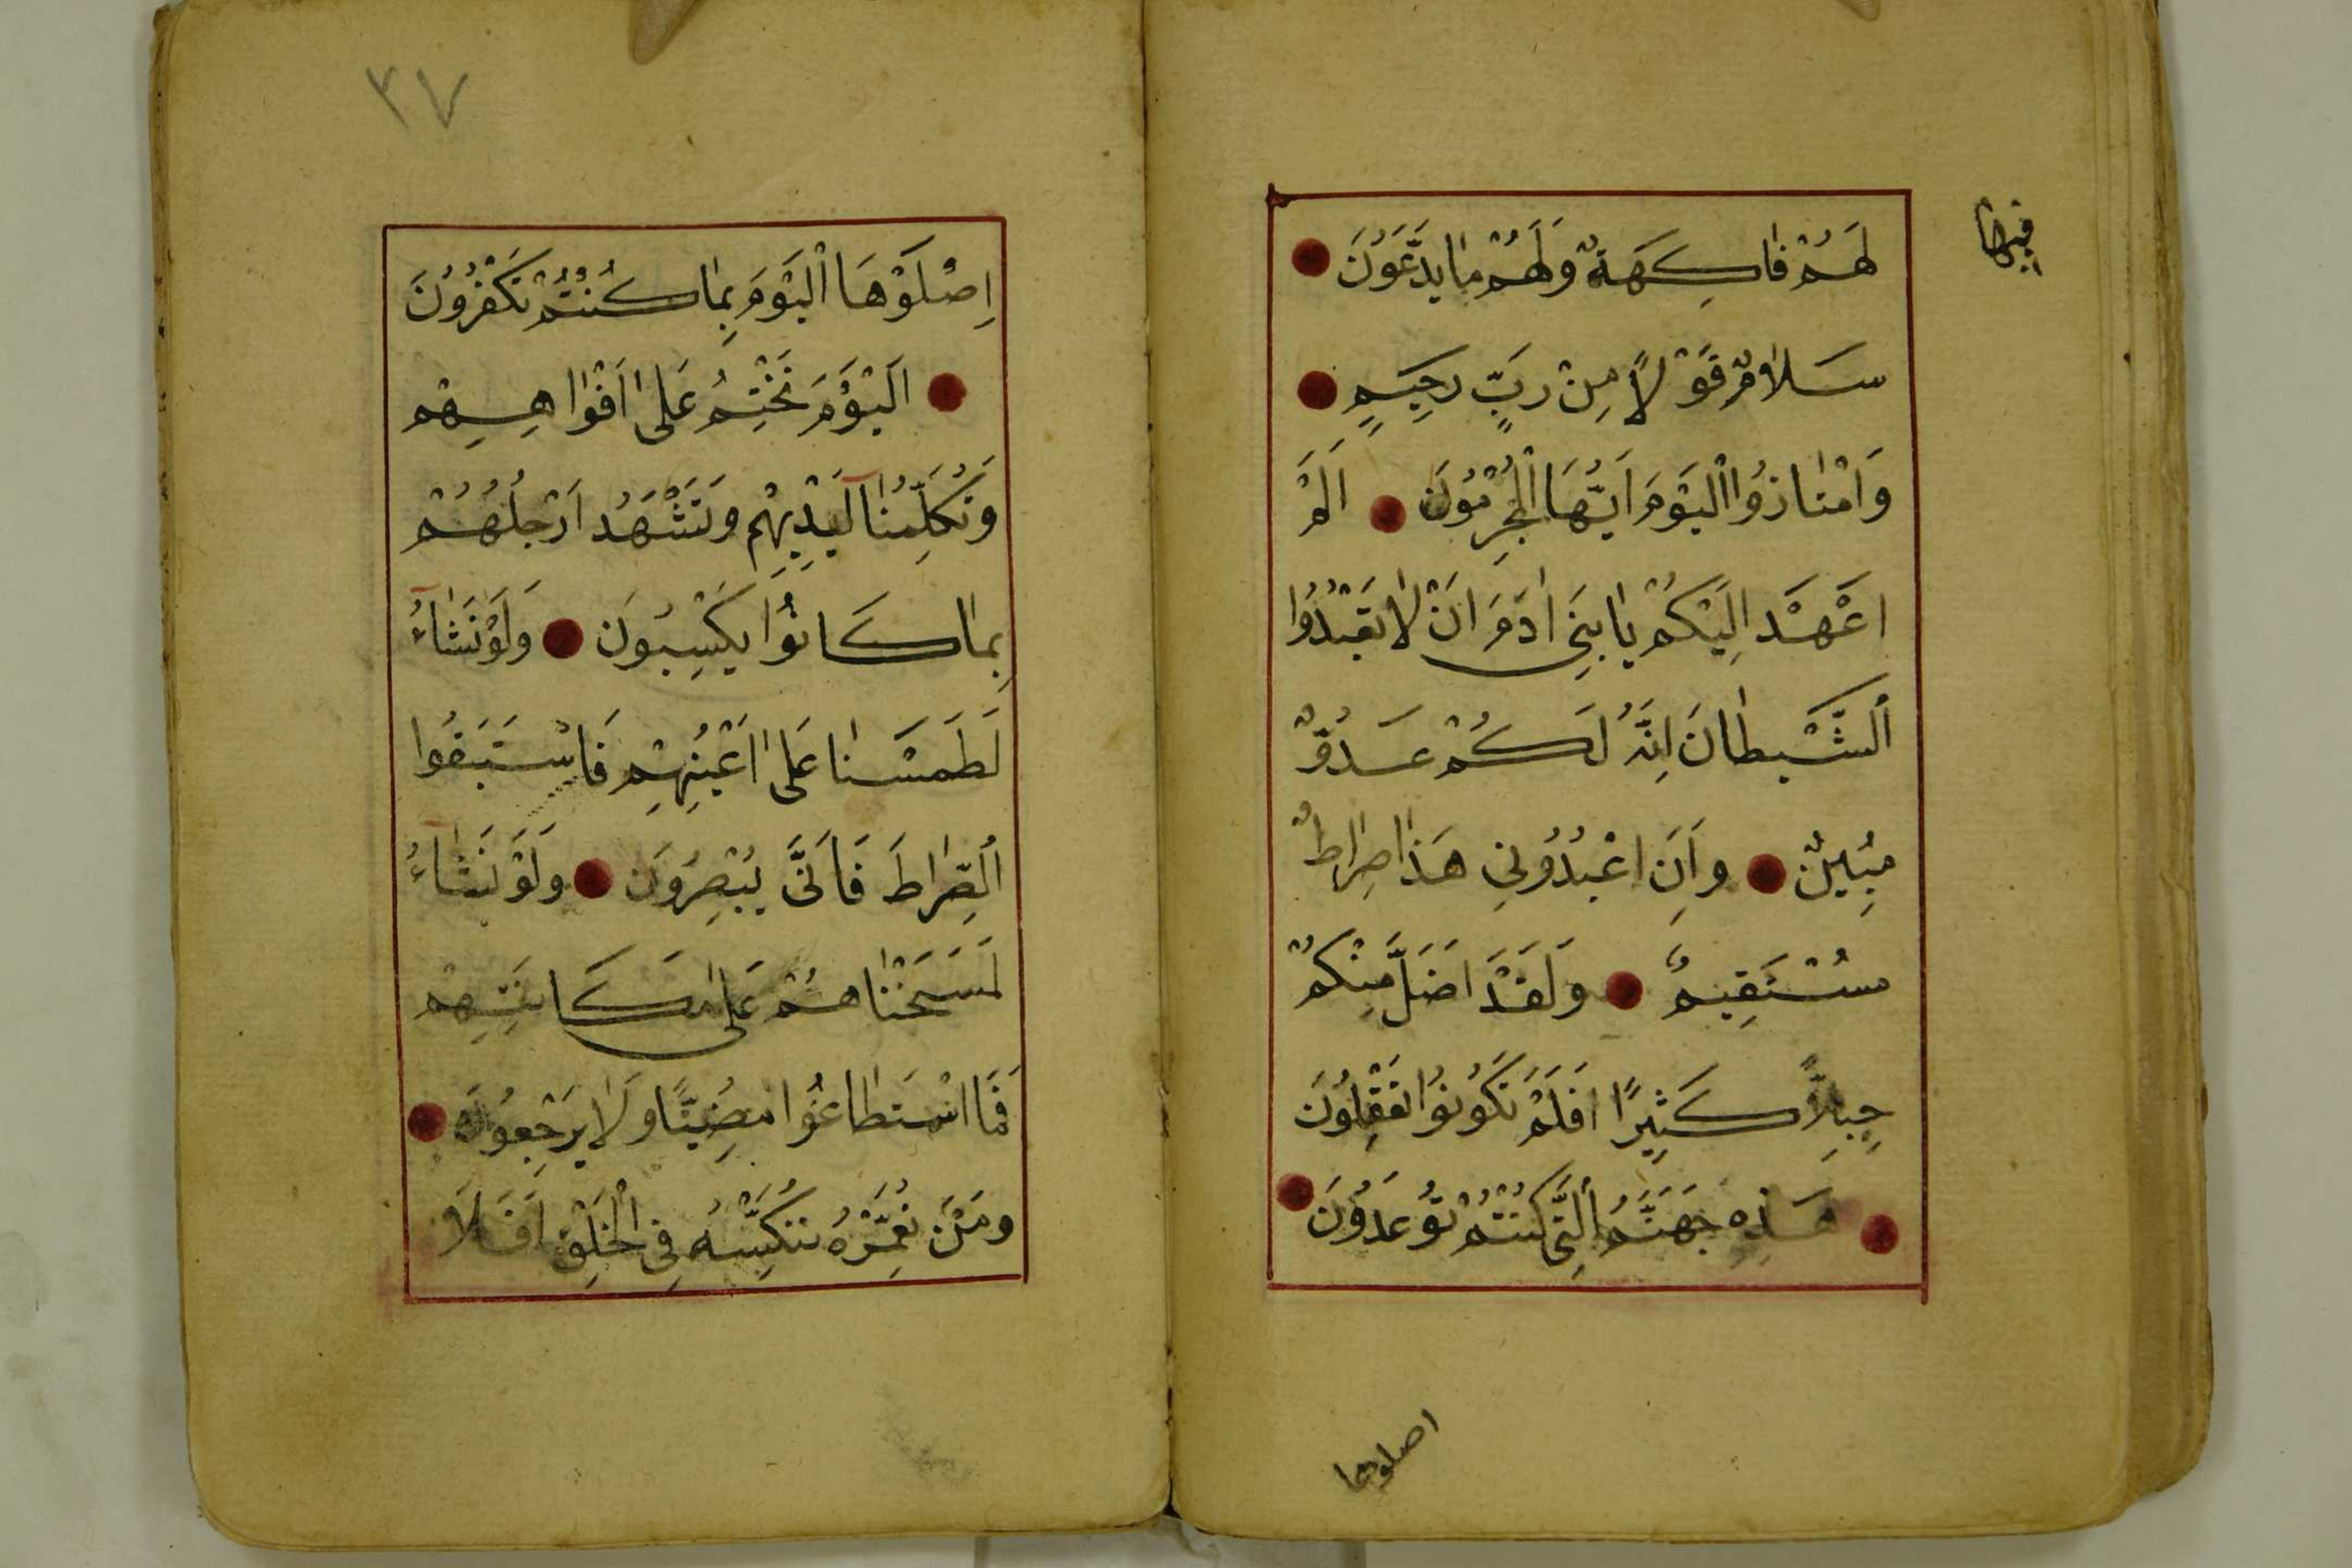 فيها
لَهُمْ فَاكِهَةٌ وَلَهُمْ مَا يَدَّعَوُنَ
سَلَامٌ قَوْلًا مِنْ رَبٍّ رَحِيَمٍ
وَامْتَازُوا الْيَوْمَ اَيُّهَا الْمُجْرِمُونَ اَلَمْ
اَعْهَدْ اِلَيْكُمْ يَا بَنِى اٰدَمَ اَنْ لَا تَعْبُدُوا
اَلشَّيْطَانَ اِنَّهُ لَكُمْ عَدُوٌّ
مُبِينٌ وَاَنِ اعْبُدُونِى هَذَا صِرَاطٌ
مُسْتَقِيمٌ وَلَقَدْ اَضَلَّ مِنْكُمْ
جِبِلًّا كَثِيرًا اَفَلَمْ تَكُونُوا تَعْقِلُونَ
هَذِهِ جَهَنَّمُ اَلَّتِى كُنْتُمْ تُوعَدُونَ
اصلوها
٣٧
اِصْلَوْهَا الْيَوْمَ بِمَا كُنْتُمْ تَكْفُرُونَ
اَلْيَوْمَ نَخْتِمُ عَلَى اَفْوَاهِهِمْ
وَتُكَلِّمُنَا اَيْدِيهِمْ وَتَشْهَدُ اَرْجُلُهُمْ
بِمَا كَانُوا يَكْسِبُونَ وَلَوْ نَشَاءُ
لَطَمَسْنَا عَلَى اَعْيُنِهِمْ فَاسْتَبَقُوا
اَلصِّرَاطَ فَاَنَّى يُبْصِرُونَ وَلَوْ نَشَاءُ
لَمَسَخْنَاهُمْ عَلَى مَكَانَتِهِمْ
فَمَا اسْتَطَاعُوا مُضِيًّا وَلَا يَرْجِعُونَ
وَمَنْ نُعَمِّرْهُ نُنَكِّسْهُ فِى الْخَلْقِ اَفَلَا